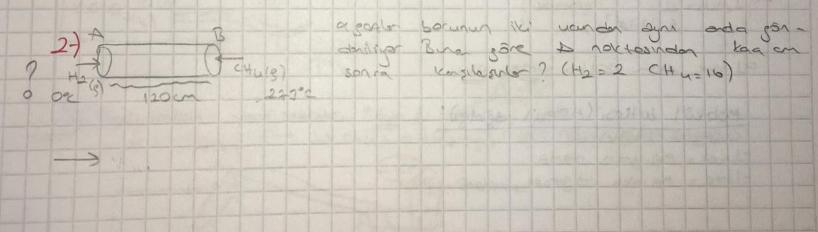 2-) A B
H2(g) CH4(g)
? 0°c 120cm 273°C
o gazlar borunun iki ucundan aynı anda gön-
deriliyor Buna göre A noktasından kaç cm
sonra karşılaşırlar? (H2=2 CH4=16)